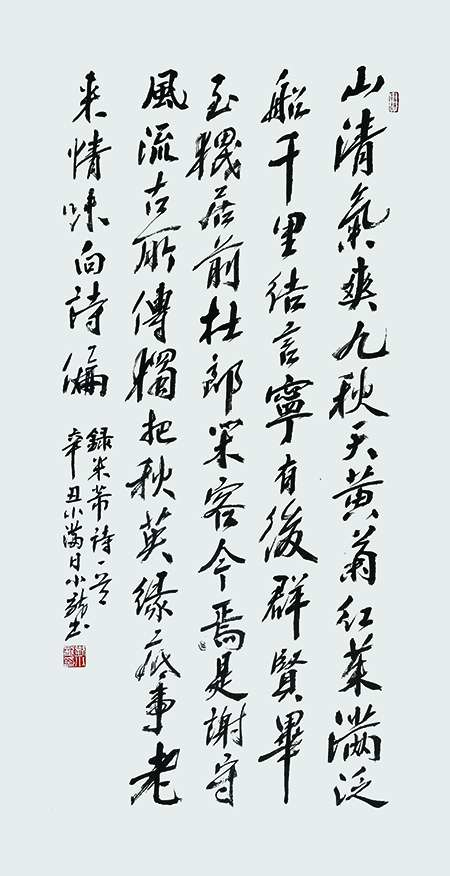 山清氣爽九秋天黄菊紅茱滿泛
船千里結言寧有後群賢畢
至猥居前杜郎閑客今焉是謝守
風流古所傳獨把秋英緣底事老
来情味向詩偏
録米芾詩一首
辛丑小滿日小龍书